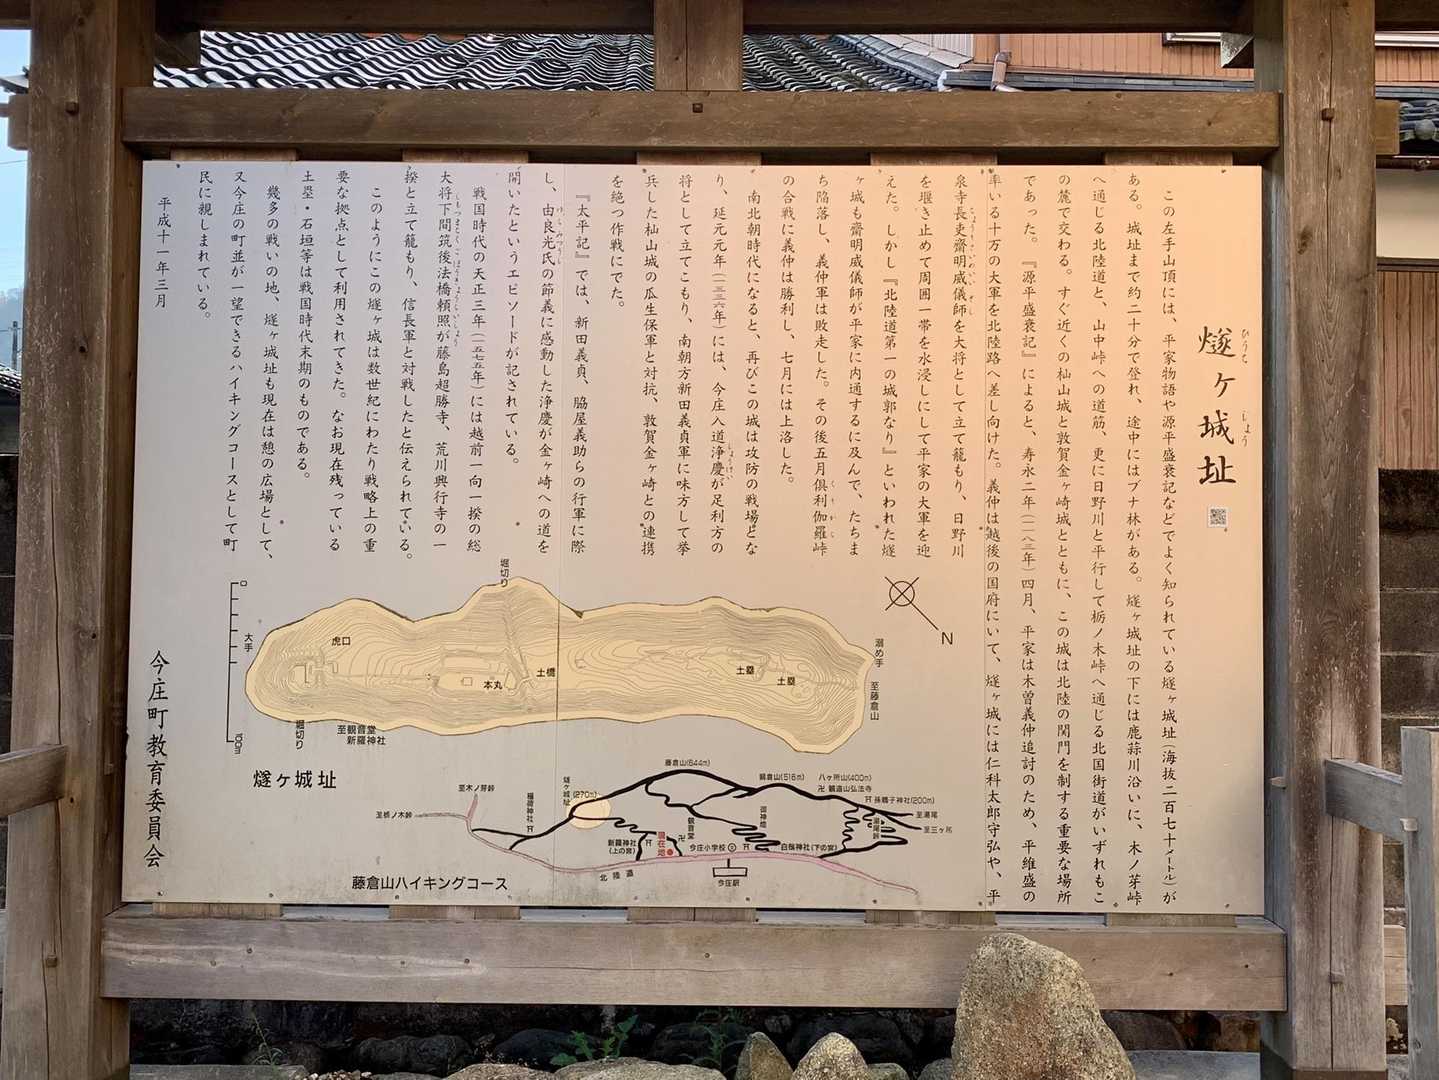 燧ヶ城址
ひうち じょう
この左手山頂には、平家物語や源平盛衰記などでよく知られている燧ヶ城址(海抜二百七十メートル)が
ある。城址まで約二十分で登れ、途中にはブナ林がある。燧ヶ城址の下には鹿蒜川沿いに、木ノ芽峠
へ通じる北陸道と、山中峠への道筋、更に日野川と平行して栃ノ木峠へ通じる北国街道がいずれもこ
の麓で交わる。すぐ近くの杣山城と敦賀金ヶ崎城とともに、この城は北陸の関門を制する重要な場所
であった。『源平盛衰記』によると、寿永二年(一一八三年)四月、平家は木曽義仲追討のため、平維盛の
率いる十万の大軍を北陸路へ差し向けた。義仲は越後の国府にいて、燧ヶ城には仁科太郎守弘や、平
泉寺長吏齋明威儀師を大将として立て籠もり、日野川
を堰き止めて周囲一帯を水浸しにして平家の大軍を迎
えた。しかし『北陸道第一の城郭なり』といわれた燧
ヶ城も齋明威儀師が平家に内通するに及んで、たちま
ち陥落し、義仲軍は敗走した。その後五月倶利伽羅峠
の合戦に義仲は勝利し、七月には上洛した。
南北朝時代になると、再びこの城は攻防の戦場とな
り、延元元年(一三三六年)には、今庄入道浄慶が足利方の
将として立てこもり、南朝方新田義貞軍に味方して挙
兵した杣山城の瓜生保軍と対抗、敦賀金ヶ崎との連携
を絶つ作戦にでた。
『太平記』では、新田義貞、脇屋義助らの行軍に際
し、由良光氏の節義に感動した浄慶が金ヶ崎への道を
開いたというエピソードが記されている。
戦国時代の天正三年(一五七五年)には越前一向一揆の総
大将下間筑後法橋頼照が藤島超勝寺、荒川興行寺の一
揆と立て籠もり、信長軍と対戦したと伝えられている。
このようにこの燧ヶ城は数世紀にわたり戦略上の重
要な拠点として利用されてきた。なお現在残っている
土塁・石垣等は戦国時代末期のものである。
幾多の戦いの地、燧ヶ城址も現在は憩の広場として、
又今庄の町並が一望できるハイキングコースとして町
民に親しまれている。
平成十一年三月
今庄町教育委員会
0
100m
大手
虎口
堀切り
堀切り
本丸
土橋
土塁
土塁
溺め手
至藤倉山
至観音堂
新羅神社
N
燧ヶ城址
至木ノ芽峠
至栃ノ木峠
稲荷神社
燧ヶ城址
(270m)
藤倉山(644m)
鍋倉山(516m)
八ヶ所山(400m)
卍 観道山弘法寺
孫嫡子神社(200m)
至湯尾
至三ヶ所
湯尾峠
御神燈
観音堂
新羅神社
(上の宮)
現在地
今庄小学校
白鬚神社(下の宮)
今庄駅
北陸道
藤倉山ハイキングコース